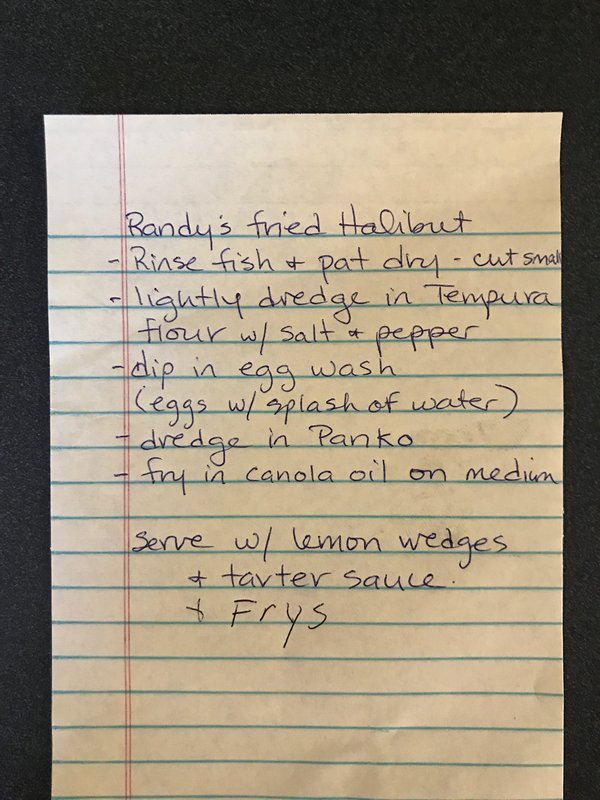 Randy's fried Halibut
- Rinse fish & pat dry - cut small
- lightly dredge in Tempura
flour w/ salt & pepper
- dip in egg wash
(eggs w/ splash of water)
- dredge in Panko
- fry in canola oil on medium
serve w/ lemon wedges
& tarter sauce.
& Frys